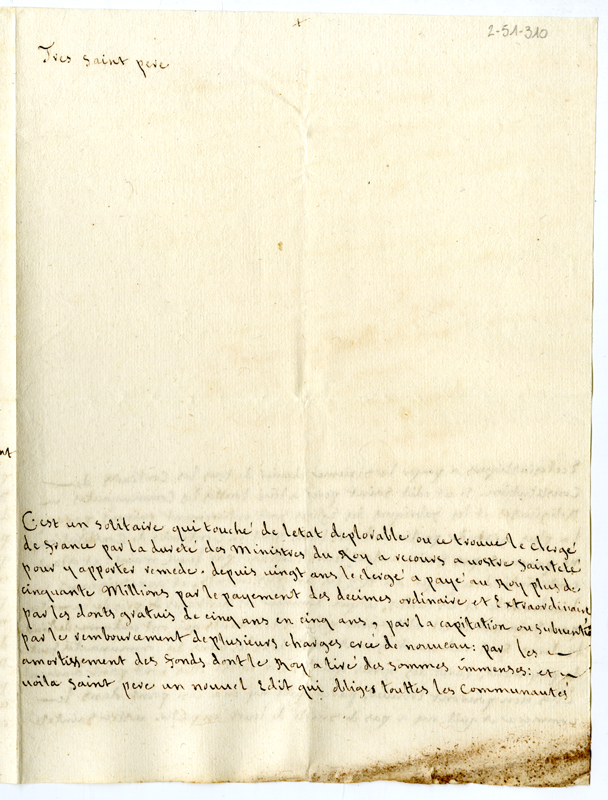 2-51-310
Tres saint pere
C'est un solitaire qui touché de letat deplorable ou ce trouve le clergé
de france par la dureté des Ministres du Roy a recours a vostre Sainteté
pour y apporter remede. depuis vingt ans le clergé a payé au Roy plus de
cinquante Millions par le payement des decimes ordinaire et Extraordinaire
par les donts gratuis de cinq ans en cinq ans, par la capitation ou subventio
par le rembourcement de plusieurs charges creé de nouveau: par les
amortissement des fonds dont le Roy a tiré des sommes immenses: et
voila saint pere un nouvel Edit qui obliges touttes les Communautés